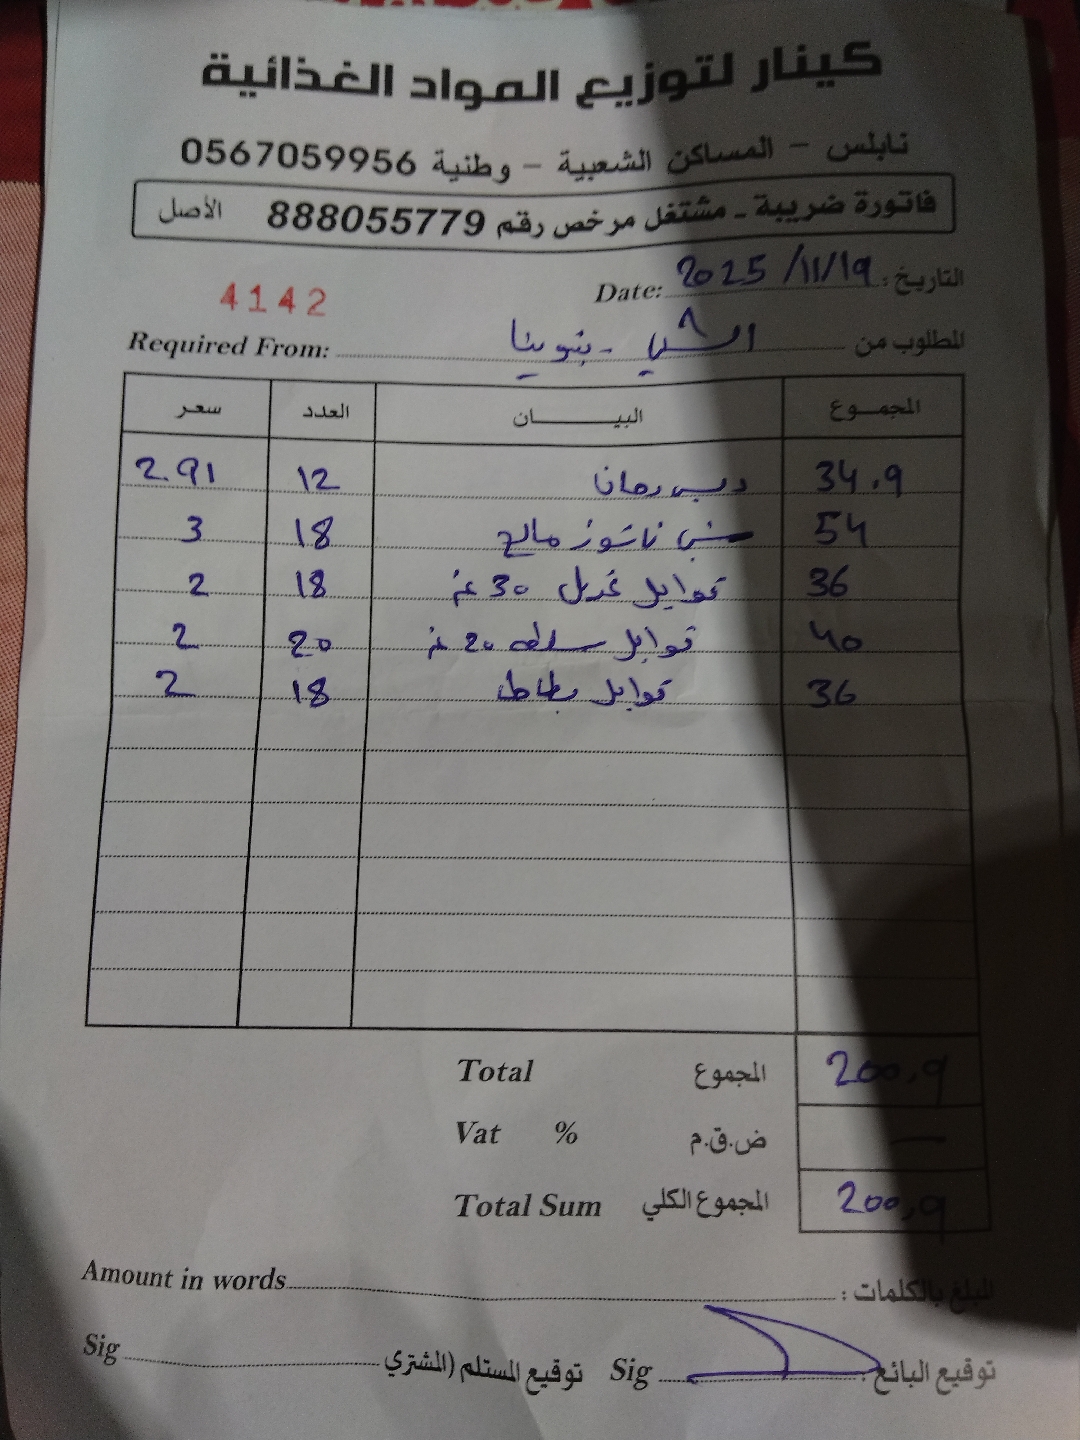 كينار لتوزيع المواد الغذائية
نابلس - المساكن الشعبية - وطنية 0567059956
فاتورة ضريبة - مشتغل مرخص رقم 888055779 الأصل
التاريخ: Date: 2025/11/19
4142
المطلوب من Required From:
المجموع البيـــــان العدد سعر
34.9 دبس رمان 12 2.91
54 ناتشوز مالح 18 3
36 توابل غريل 30 غم 18 2
40 توابل سلطه 20 غم 20 2
36 توابل بطاطا 18 2
Total المجموع 200.9
Vat % ض.ق.م —
Total Sum المجموع الكلي 200.9
Amount in words المبلغ بالكلمات:
توقيع البائع: Sig توقيع المستلم (المشتري Sig